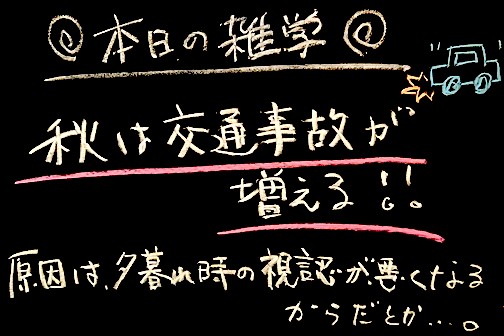 ◎ 本日の雑学 ◎
秋は交通事故が
増える!!
原因は、夕暮れ時の視認が悪くなる
からだとか…。